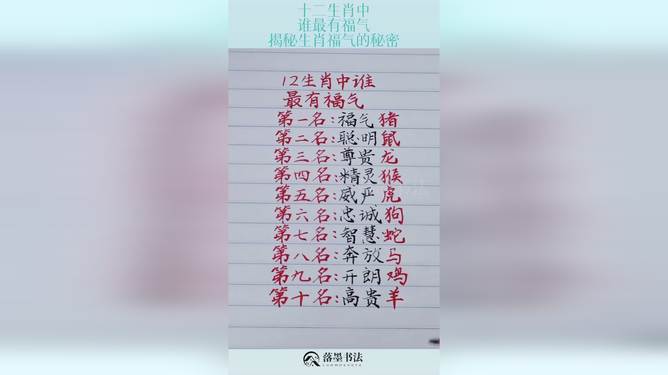 十二生肖中
谁最有福气
揭秘生肖福气的秘密
12生肖中谁
最有福气
第一名:福气猪
第二名:聪明鼠
第三名:尊贵龙
第四名:精灵猴
第五名:威严虎
第六名:忠诚狗
第七名:智慧蛇
第八名:奔放马
第九名:开朗鸡
第十名:高贵羊
落墨书法